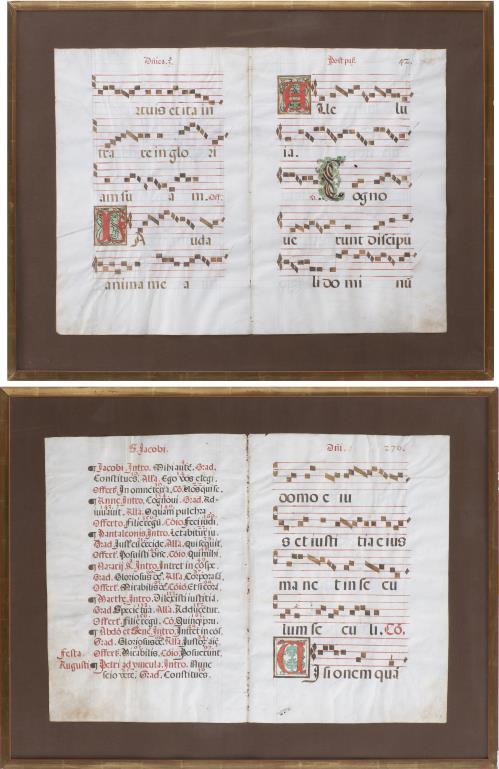 Dnica. 3.
rtuis et ita in
tra re in glo ri
am su a m. Off.
L A uda
anima me a
Post pas. 42.
A lle lu
ia.
C ogno
ue runt discipu
li do mi nū
S. Jacobi.
Jacobi. Intro. Mihi autē. Grad.
Constitues. Alla. Ego vos elegi.
Offert. In omnē terrā. Cō. Vos qui se.
Anne. Intro. Cognoui. Grad. Ad-
iuuauit. Alla. O quam pulchra
Offerto. Filie regū. Cōio. Feci iudi.
Pantaleonis. Intro. Letabitur iu.
Grad. Just. cū cecide. Alla. Qui sequit.
Offert. Posuisti dne. Cōio. Qui mihi.
Intro. Intret in cōspe.
Grad. Gloriosus. Alla. Corpora s.
Offert. Mirabilis. Cōio. Et si corā
Marthe. Intro. Dilexisti iustitiā.
Grad. Specie tua. Alla. Adducētur.
Offert. Filie regū. Cōio. Quinq; pru.
Abdō et Senē. Intro. Intret in cōs.
Grad. Gloriosus. Alla.
Offert. Mirabilis. Cōio. Posuerunt.
Festa Augusti
Petri ad vincula. Intro. Nunc
scio vere. Grad. Constitues.
Dni. 276.
domo e iu
s et iusti tia eius
ma ne t in se cu
lum se cu li. Cō.
U isionem quā